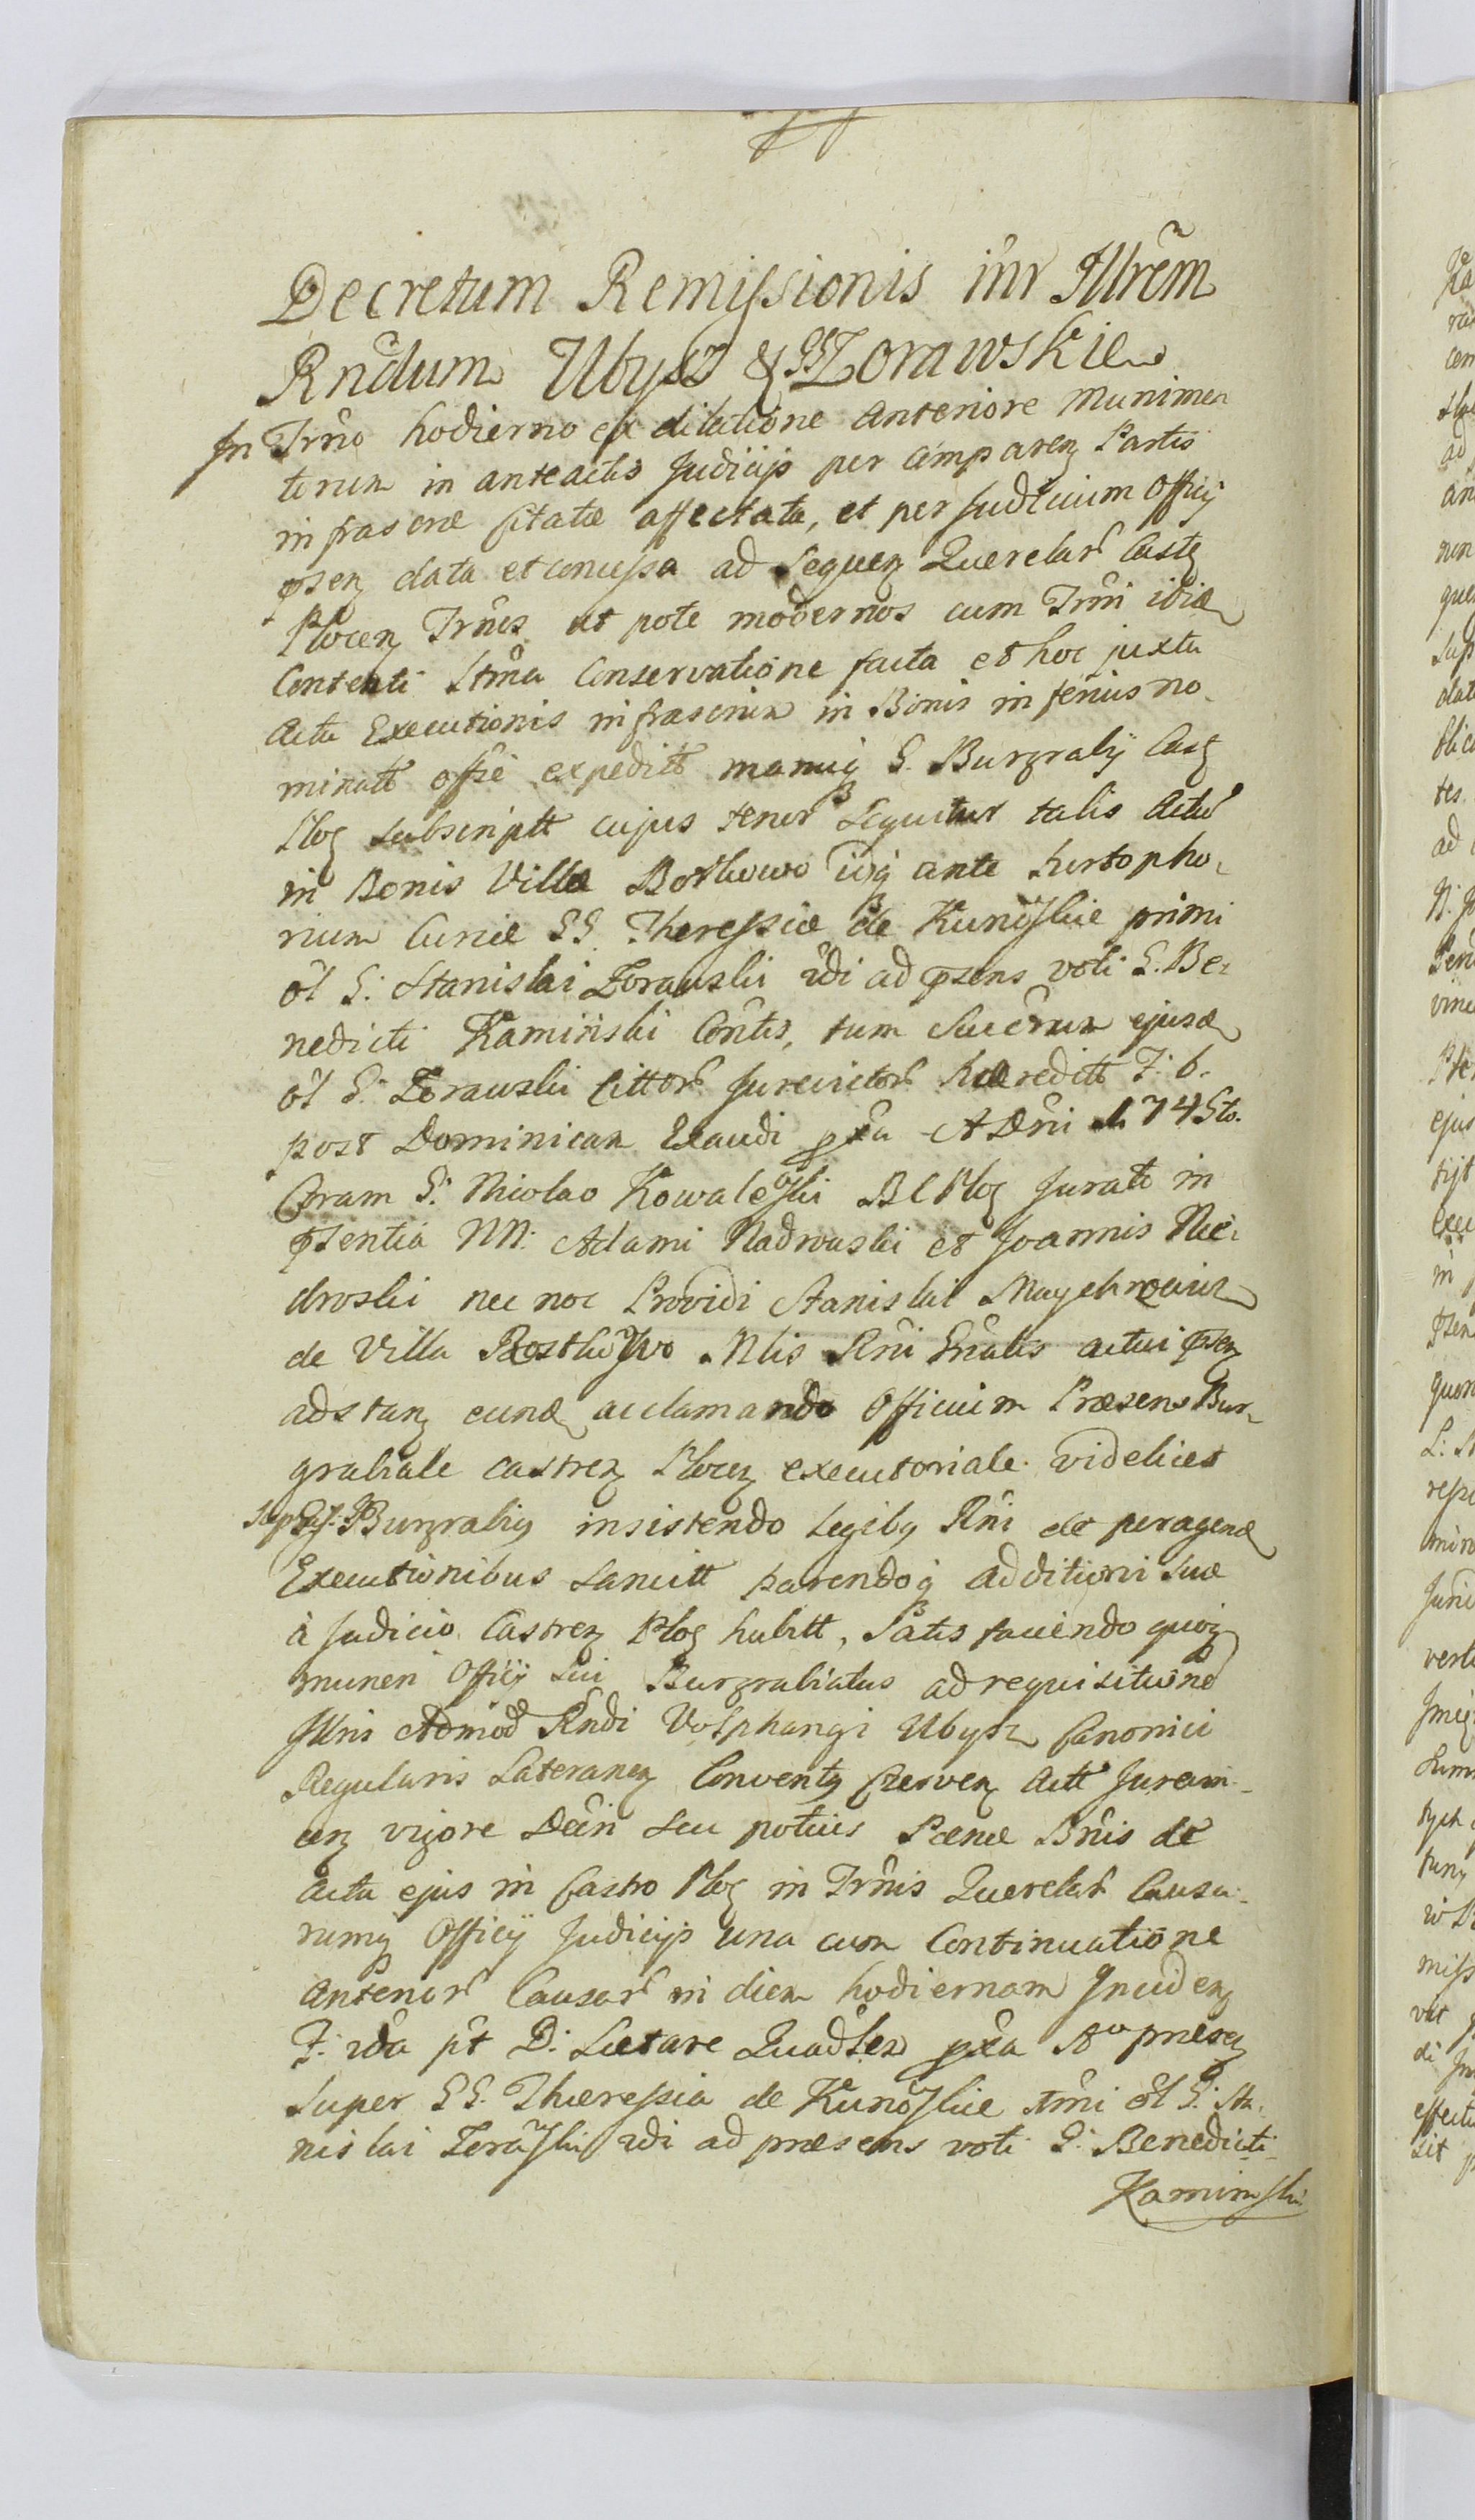 Decretum Remissionis inr Illrem
Rndum Ubysz & GG Zorawskie
In Trno hodierno ex dilatione anteriore Munimen
torum in anteactis Judicijs per comparen Partis
infrascrae citatae affectata, et per Judicium Officij
psen data et concessa ad sequen Querelar Castr
Plocen Trnos ut pote modernos cum Trni ibid
Contenti Conservatione facta et hoc juxta
Acta Executionis infrascrum in Bonis inferius no-
minatt offse expeditt manuq G. Burgrabij Cast
Ploc subscriptt cujus tenor sequitur talis Actum
in Bonis Villae ibiq ante
rium Curiae GG Theressiae de Kunowskie primi
ol G: Stanislai Zorawski 2di ad psens voti G. Be-
nedicti Kaminski Contis, tum Succrum ejusd
ol G: Zorawski Cittor Jurevictor Haereditt F: 6.
post Dominicam Exaudi pxa A Dni 174Sto.
Coram G: Nicolao Kowalewski BCPloc Juratt in
psentia NN: Adami Nadrowski et Joannis Nie-
droski nec non Providi Stanislai
de Villa Rostkowo Mlis Rni Gnalis actui psen
adstan eund acclamando Officium Praesens Bur-
grabiale castren Plocen executoriale videlicet
Burgrabig insistendo Legibq Rni de peragend
Executionibus sancitt parendoq additioni suae
à Judicio Castren Ploc habitt, Satis faciendo quoq
muneri Officij sui Burgrabiatus ad requisitione
Illris Admod Rndi Volphangi Ubysz Canonici
Regularis Lateranen Conventq Czerven Actt Juram-
en vigore Decrti seu potius Paenae Bnis de
acta ejus in Castro Ploc in Trnis Querelar Causa-
rumq Officij Judicijs una cum Continuatione
Anterior Causar in diem hodiernam Inciden
F: 2da pt D: Laetare Quadlem pxa Ao praesen
super GG. Thaeressia de Kunowskie 1mi ol G: Sta-
nislai Zorawski 2di ad praesens voti G: Benedicti
Kaminski